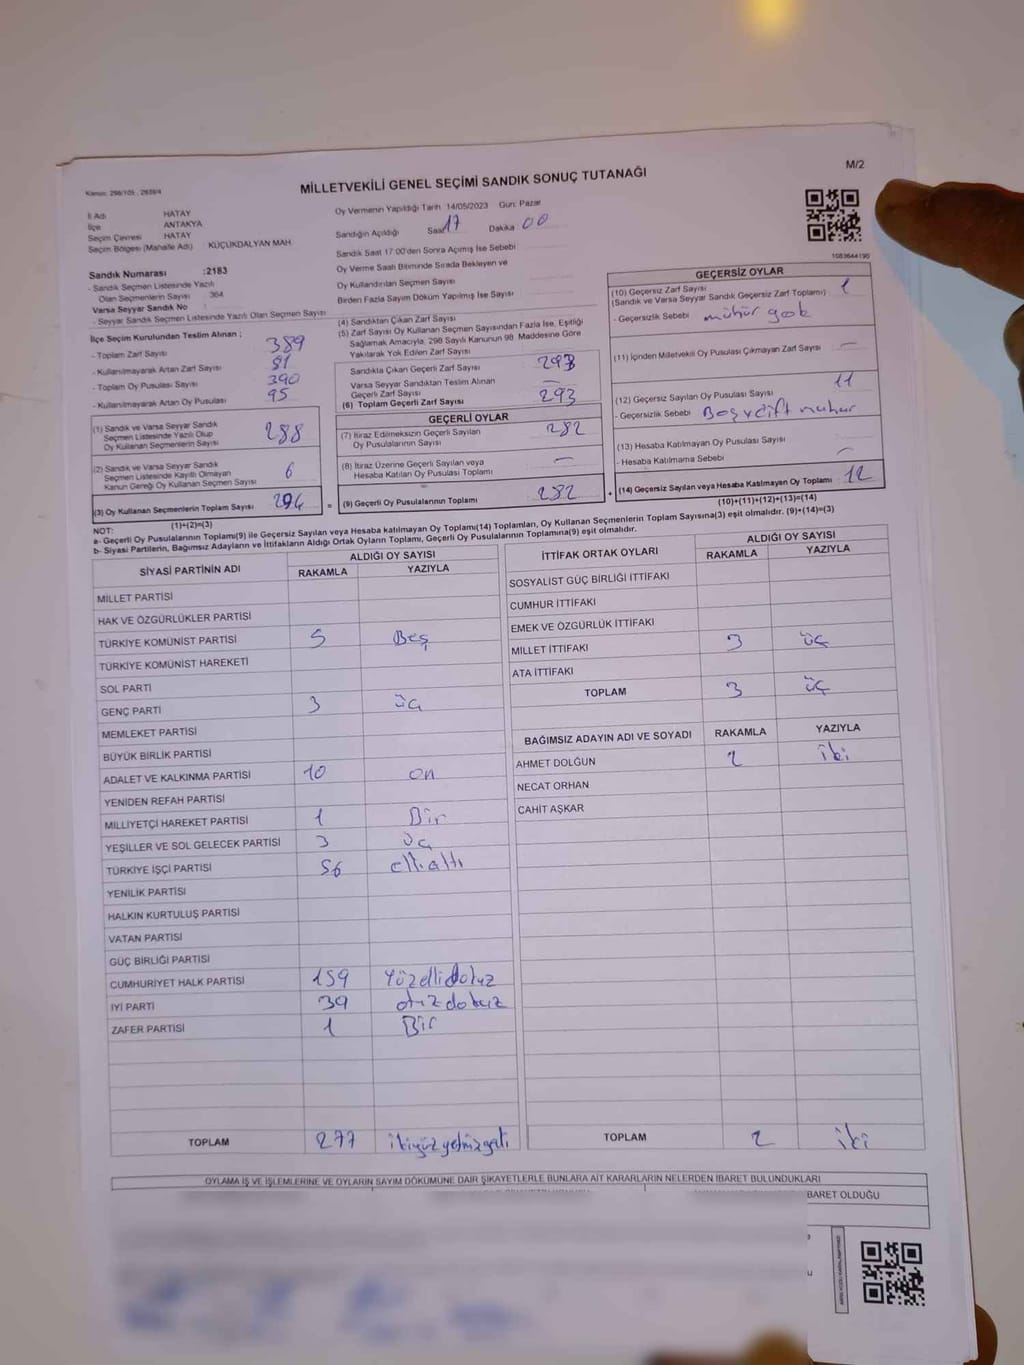 M/2
Kanun: 298/105 , 2839/4
MİLLETVEKİLİ GENEL SEÇİMİ SANDIK SONUÇ TUTANAĞI
İl Adı HATAY
İlçe ANTAKYA
Seçim Çevresi HATAY
Seçim Bölgesi (Mahalle Adı) : KÜÇÜKDALYAN MAH
Sandık Numarası :2183
- Sandık Seçmen Listesinde Yazılı
Olan Seçmenlerin Sayısı : 364
Varsa Seyyar Sandık No :
- Seyyar Sandık Seçmen Listesinde Yazılı Olan Seçmen Sayısı
Oy Vermenin Yapıldığı Tarih 14/05/2023 Gün: Pazar
Sandığın Açıldığı Saat 17 Dakika 00
Sandık Saat 17:00'den Sonra Açımış İse Sebebi
Oy Verme Saati Bitiminde Sırada Bekleyen ve
Oy Kullandırılan Seçmen Sayısı
Birden Fazla Sayım Döküm Yapılmış İse Sayısı
(4) Sandıktan Çıkan Zarf Sayısı
(5) Zarf Sayısı Oy Kullanan Seçmen Sayısından Fazla İse, Eşitliği
Sağlamak Amacıyla, 298 Sayılı Kanunun 98. Maddesine Göre
Yakılarak Yok Edilen Zarf Sayısı
1083644190
İlçe Seçim Kurulundan Teslim Alınan ;
- Toplam Zarf Sayısı 389
- Kullanılmayarak Artan Zarf Sayısı 81
- Toplam Oy Pusulası Sayısı 390
- Kullanılmayarak Artan Oy Pusulası 95
(1) Sandık ve Varsa Seyyar Sandık
Seçmen Listesinde Yazılı Olup
Oy Kullanan Seçmenlerin Sayısı 288
(2) Sandık ve Varsa Seyyar Sandık
Seçmen Listesinde Kayıtlı Olmayan
Kanun Gereği Oy Kullanan Seçmen Sayısı 6
(3) Oy Kullanan Seçmenlerin Toplam Sayısı 294
(1)+(2)=(3)
Sandıkta Çıkan Geçerli Zarf Sayısı 293
Varsa Seyyar Sandıktan Teslim Alınan
Geçerli Zarf Sayısı —
(6) Toplam Geçerli Zarf Sayısı 293
GEÇERLİ OYLAR
(7) İtiraz Edilmeksizin Geçerli Sayılan
Oy Pusulalarının Sayısı 282
(8) İtiraz Üzerine Geçerli Sayılan veya
Hesaba Katılan Oy Pusulası Toplamı —
= (9) Geçerli Oy Pusulalarının Toplamı 282
GEÇERSİZ OYLAR
(10) Geçersiz Zarf Sayısı
(Sandık ve Varsa Seyyar Sandık Geçersiz Zarf Toplamı) 1
- Geçersizlik Sebebi mühür yok
(11) İçinden Milletvekili Oy Pusulası Çıkmayan Zarf Sayısı —
(12) Geçersiz Sayılan Oy Pusulası Sayısı 11
- Geçersizlik Sebebi Boş çift mühür
(13) Hesaba Katılmayan Oy Pusulası Sayısı
- Hesaba Katılmama Sebebi —
+ (14) Geçersiz Sayılan veya Hesaba Katılmayan Oy Toplamı 12
(10)+(11)+(12)+(13)=(14)
NOT:
a- Geçerli Oy Pusulasının Toplamı(9) ile Geçersiz Sayılan veya Hesaba katılmayan Oy Toplamı(14) Toplamları, Oy Kullanan Seçmenlerin Toplam Sayısına(3) eşit olmalıdır. (9)+(14)=(3)
b- Siyasi Partilerin, Bağımsız Adayların ve İttifakların Aldığı Ortak Oyların Toplamı, Geçerli Oy Pusulalarının Toplamına(9) eşit olmalıdır.
SİYASİ PARTİNİN ADI ALDIĞI OY SAYISI
RAKAMLA YAZIYLA
MİLLET PARTİSİ
HAK VE ÖZGÜRLÜKLER PARTİSİ
TÜRKİYE KOMÜNİST PARTİSİ 5 Beş
TÜRKİYE KOMÜNİST HAREKETİ
SOL PARTİ
GENÇ PARTİ 3 üç
MEMLEKET PARTİSİ
BÜYÜK BİRLİK PARTİSİ
ADALET VE KALKINMA PARTİSİ 10 on
YENİDEN REFAH PARTİSİ
MİLLİYETÇİ HAREKET PARTİSİ 1 Bir
YEŞİLLER VE SOL GELECEK PARTİSİ 3 üç
TÜRKİYE İŞÇİ PARTİSİ 56 elli altı
YENİLİK PARTİSİ
HALKIN KURTULUŞ PARTİSİ
VATAN PARTİSİ
GÜÇ BİRLİĞİ PARTİSİ
CUMHURİYET HALK PARTİSİ 159 Yüzellidokuz
İYİ PARTİ 39 otuzdokuz
ZAFER PARTİSİ 1 Bir
TOPLAM 277 ikiyüzyetmişyedi
İTTİFAK ORTAK OYLARI ALDIĞI OY SAYISI
RAKAMLA YAZIYLA
SOSYALİST GÜÇ BİRLİĞİ İTTİFAKI
CUMHUR İTTİFAKI
EMEK VE ÖZGÜRLÜK İTTİFAKI
MİLLET İTTİFAKI 3 üç
ATA İTTİFAKI
TOPLAM 3 üç
BAĞIMSIZ ADAYIN ADI VE SOYADI RAKAMLA YAZIYLA
AHMET DOLĞUN 2 iki
NECAT ORHAN
CAHİT AŞKAR
TOPLAM 2 iki
OYLAMA İŞ VE İŞLEMLERİNE VE OYLARIN SAYIM DÖKÜMÜNE DAİR ŞİKAYETLERLE BUNLARA AİT KARARLARIN NELERDEN İBARET BULUNDUKLARI
İBARET OLDUĞU